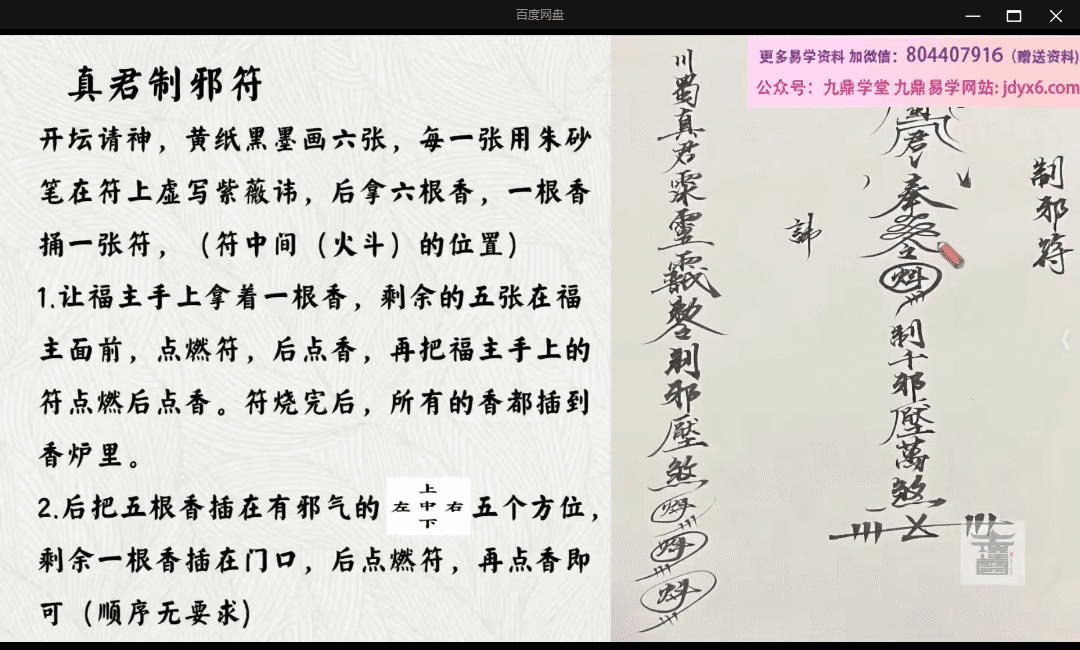 百度网盘
更多易学资料 加微信：804407916（赠送资料)
公众号：九鼎学堂 九鼎易学网站: jdyx6.com
真君制邪符
开坛请神，黄纸黑墨画六张，每一张用朱砂
笔在符上虚写紫薇讳，后拿六根香，一根香
捅一张符，（符中间（火斗）的位置）
1.让福主手上拿着一根香，剩余的五张在福
主面前，点燃符，后点香，再把福主手上的
符点燃后点香。符烧完后，所有的香都插到
香炉里。
2.后把五根香插在有邪气的
上
左 中 右
下
五个方位，
剩余一根香插在门口，后点燃符，再点香即
可（顺序无要求）
制邪符
君
奉
制十邪壓萬煞
諱
川蜀真君
制邪壓煞